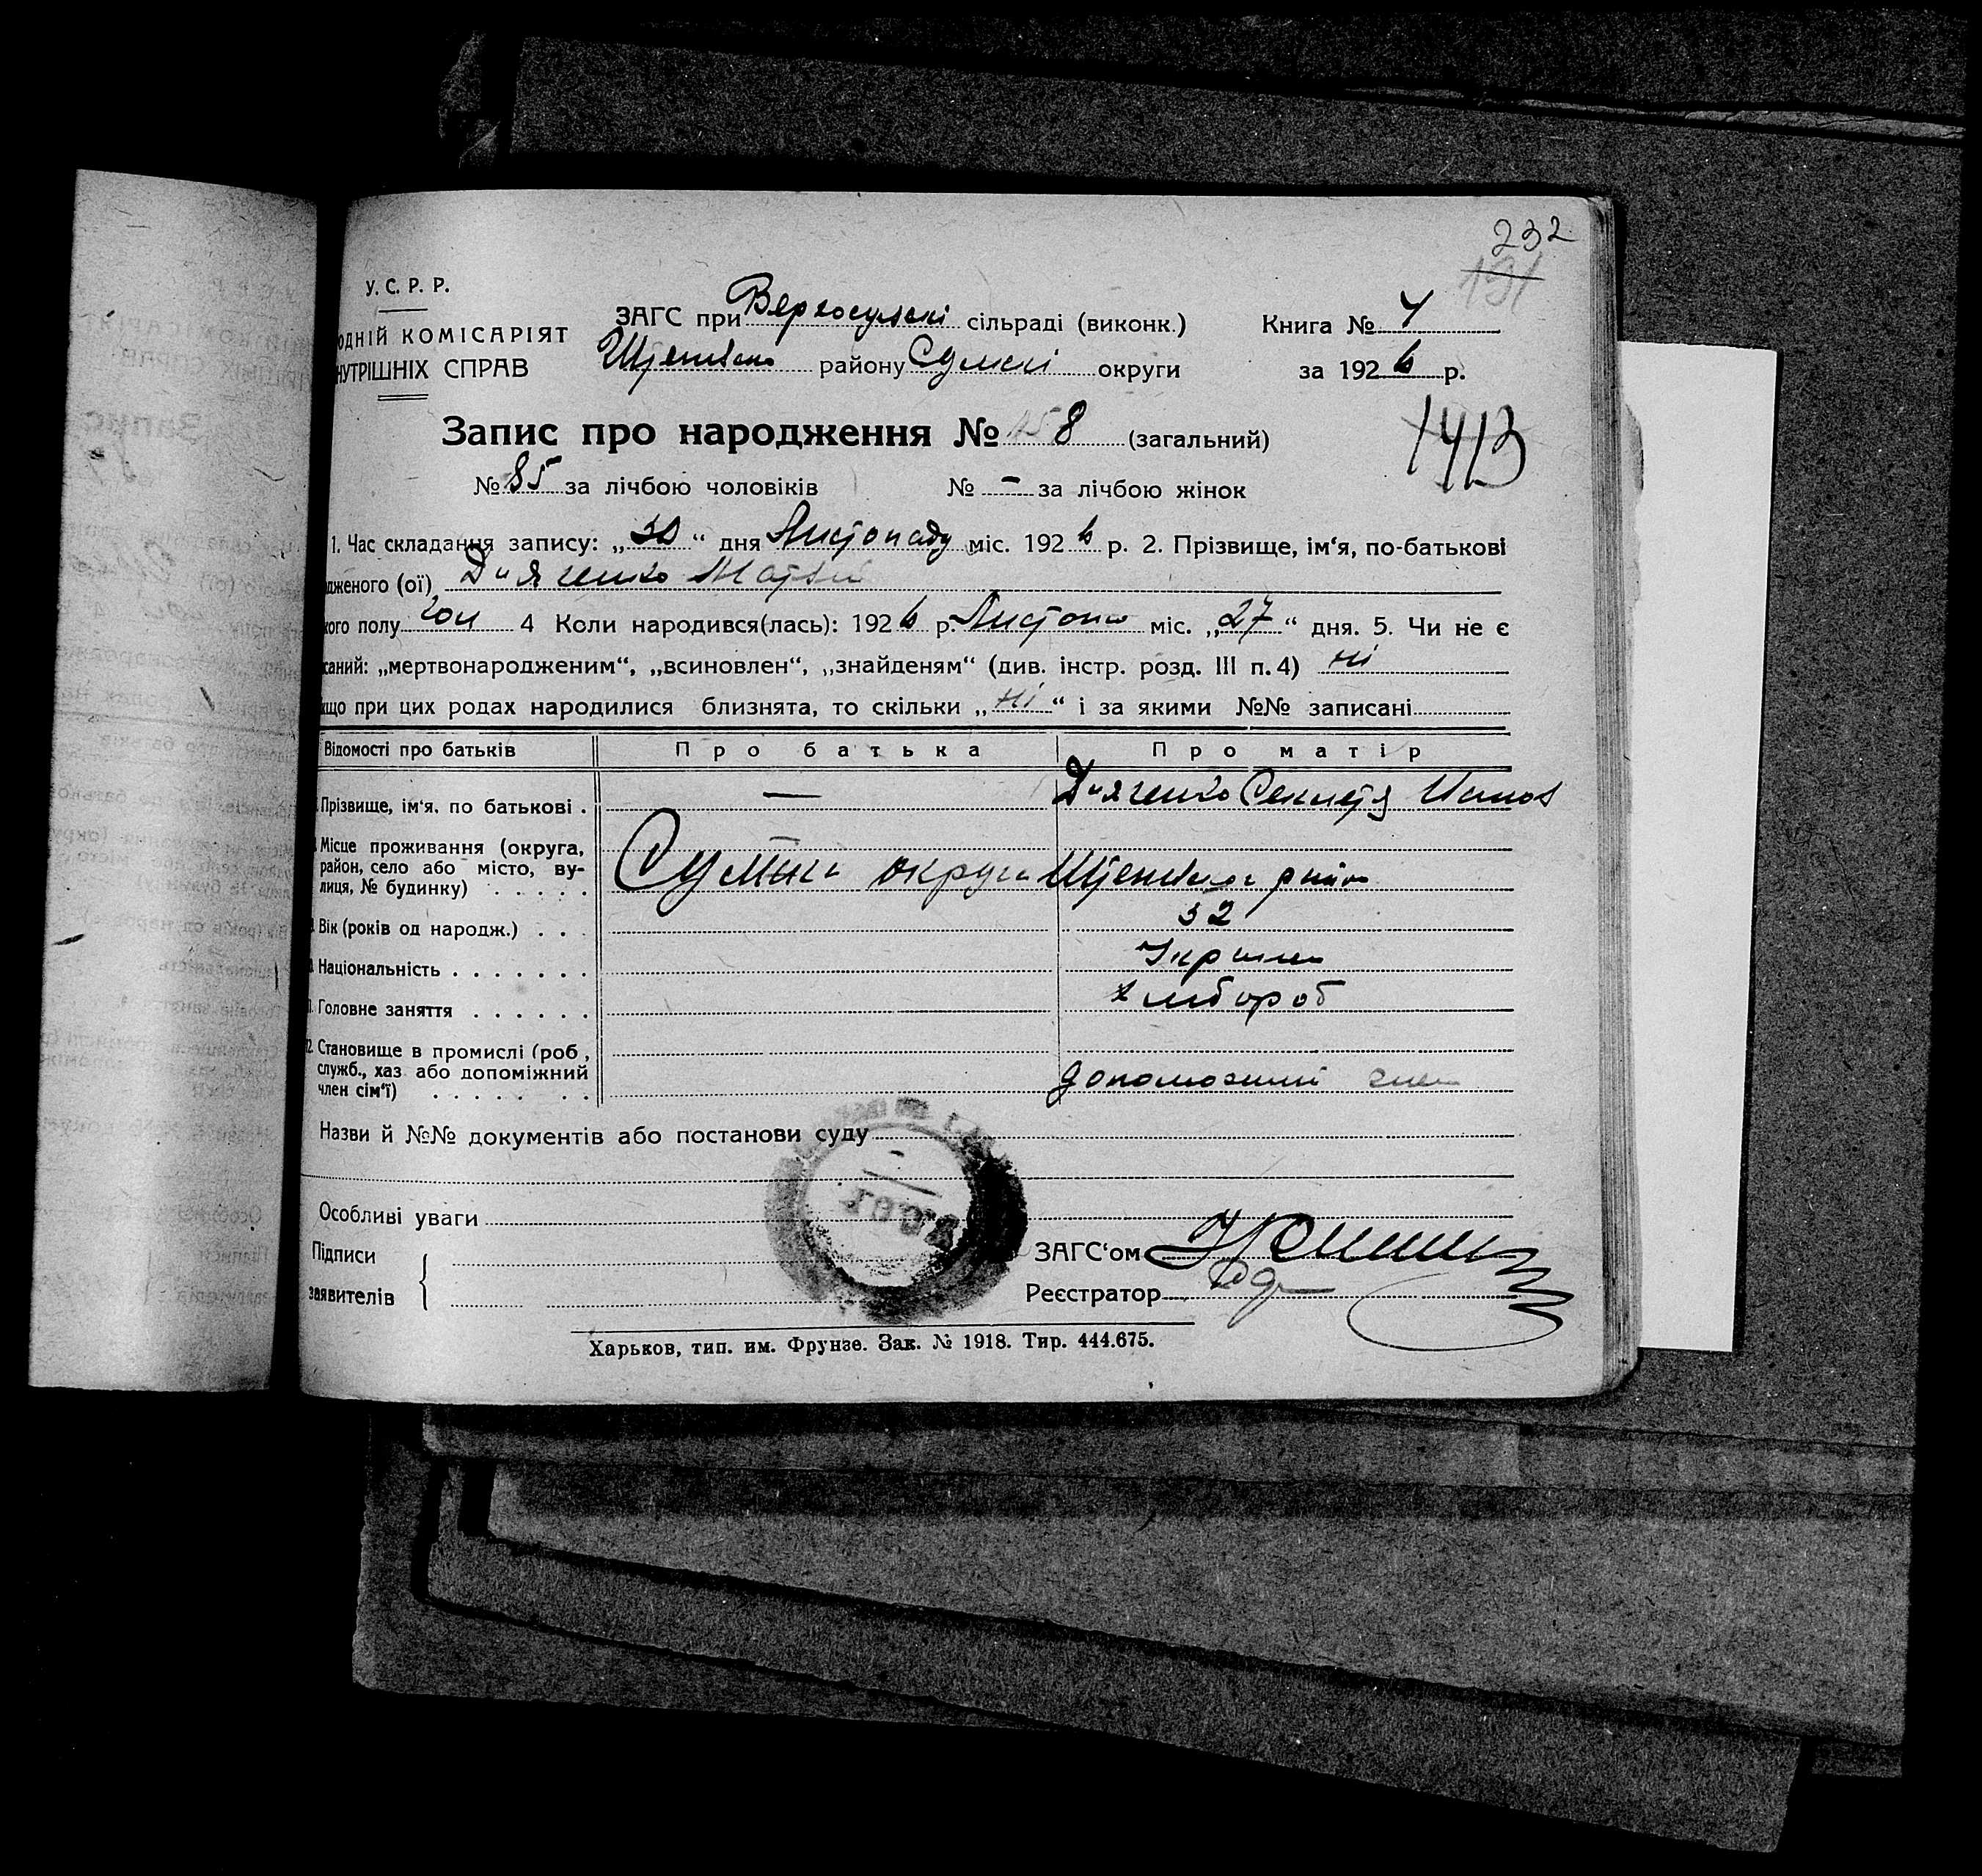 232
191
У. С. Р. Р.
ОДНІЙ КОМІСАРІЯТ
НУТРІШНІХ СПРАВ
ЗАГС при Верхосульскі сільраді (виконк.) Книга № 4
району Сумскі округи за 1926 р.
1413
Запис про народження № 158 (загальний)
№ 85 за лічбою чоловіків № - за лічбою жінок
1. Час складання запису: „30“ дня Листопаду міс. 1926 р. 2. Прізвище, ім‘я, по-батькові
дженого (ої) Дияченко Матвій
кого полу чол 4 Коли народився(лась): 1926 р. Листопа міс. „27“ дня. 5. Чи не є
саний: „мертвонародженим“, „всиновлен“, „знайденям“ (див. інстр. розд. III п. 4) ні
кщо при цих родах народилися близнята, то скільки „ні“ і за якими №№ записані
Відомості про батьків Про батька Про матір
Прізвище, ім‘я, по батькові . — Дияченко
Місце проживання (округа, район, село або місто, вулиця, № будинку) . . . . . Сумська округа район
Вік (років од народж.) . . . 32
Національність . . . . . . .
Головне заняття . . . . . . хлібороб
2. Становище в промислі (роб, служб., хаз або допоміжний член сім‘ї) . . . . . . . допоможний член
Назви й №№ документів або постанови суду
Особливі уваги
Підписи
заявителів
ЗАГС‘ом
Реєстратор
Харьков, тип. им. Фрунзе. Зак. № 1918. Тир. 444.675.